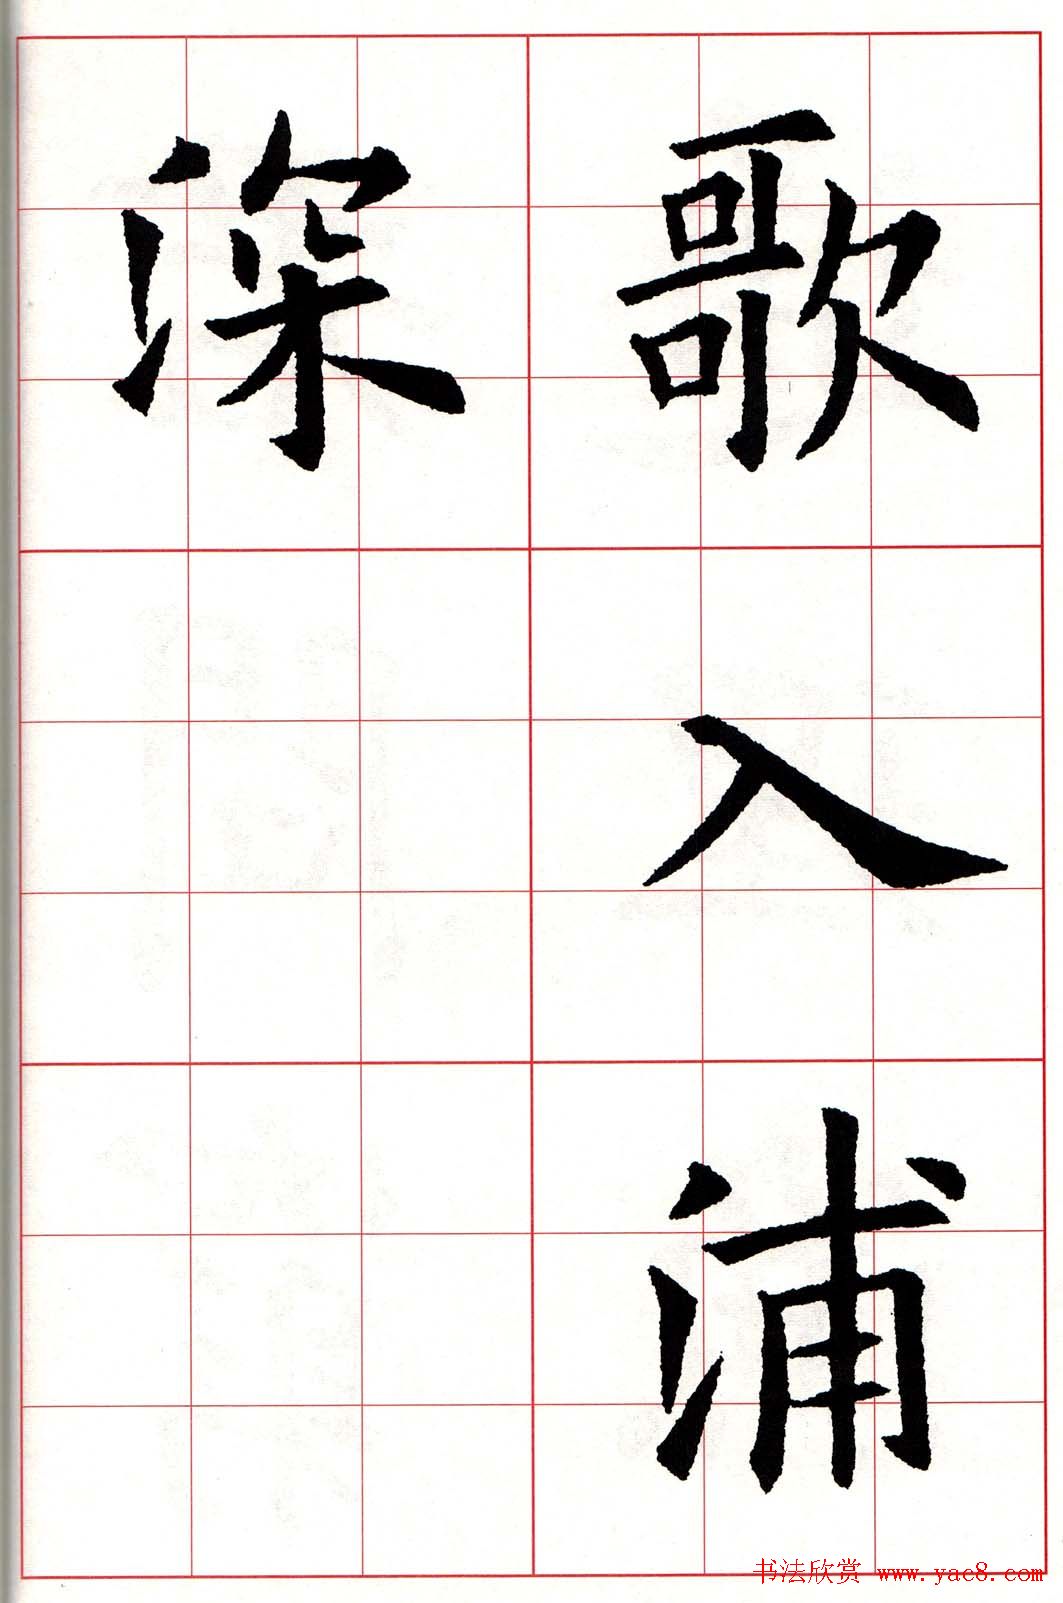 歌入浦
深
书法欣赏 www.yac8.com